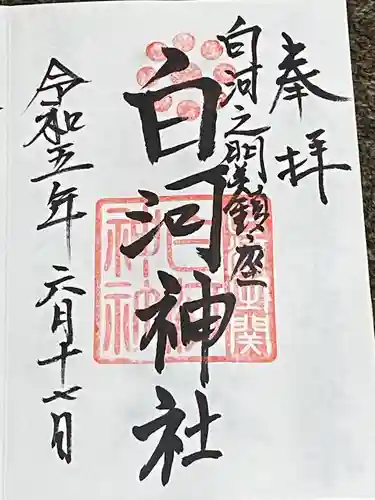 奉拝
白河之関鎮座
白河神社
令和五年 六月十七日